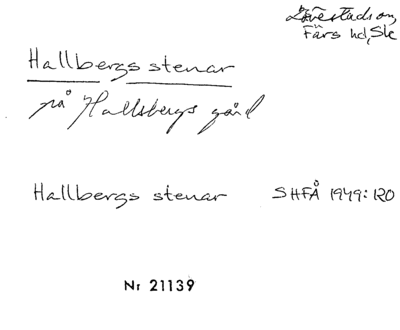 Lövestads sn,
Färs hd, Sk
Hallbergs stenar
på Hallsbergs gård
Hallbergs stenar SHFÅ 1949:120
Nr 21139